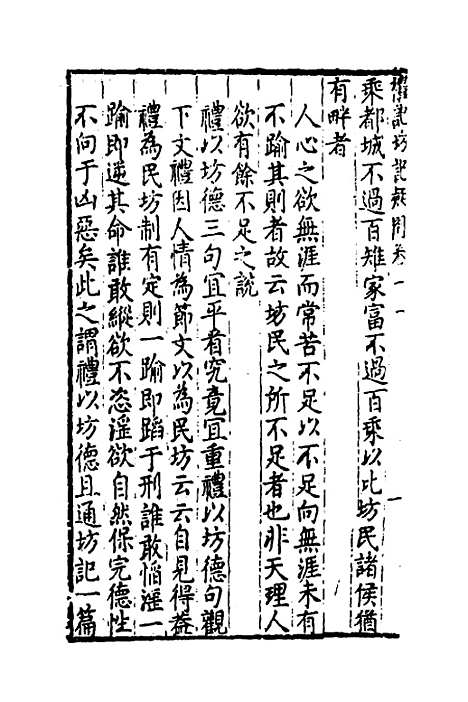 禮記坊記疑問卷
乘都城不過百雉家富不過百乘以此坊民諸侯猶
有畔者
人心之欲無涯而常苦不足以不足向無涯未有
不踰其則者故云坊民之所不足者也非天理人
欲有餘不足之說
禮以坊德三句宜平看究竟宜重禮以坊德句觀
下文禮因人情為節文以為民坊云云自見得蓋
禮為民坊制有定則一踰即蹈于刑誰敢慆淫一
踰即逆其命誰敢縱欲不恣淫欲自然保完德性
不向于凶惡矣此之謂禮以坊德且通坊記一篇